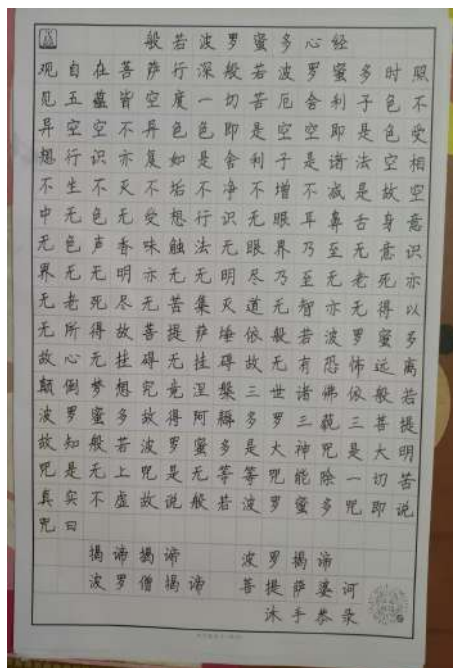 般若波罗蜜多心经
观自在菩萨行深般若波罗蜜多时照
见五蕴皆空度一切苦厄舍利子色不
异空空不异色色即是空空即是色受
想行识亦复如是舍利子是诸法空相
不生不灭不垢不净不增不减是故空
中无色无受想行识无眼耳鼻舌身意
无色声香味触法无眼界乃至无意识
界无无明亦无无明尽乃至无老死亦
无老死尽无苦集灭道无智亦无得以
无所得故菩提萨埵依般若波罗蜜多
故心无挂碍无挂碍故无有恐怖远离
颠倒梦想究竟涅槃三世诸佛依般若
波罗蜜多故得阿耨多罗三藐三菩提
故知般若波罗蜜多是大神咒是大明
咒是无上咒是无等等咒能除一切苦
真实不虚故说般若波罗蜜多咒即说
咒曰
揭谛揭谛 波罗揭谛
波罗僧揭谛 菩提萨婆诃
沐手恭录